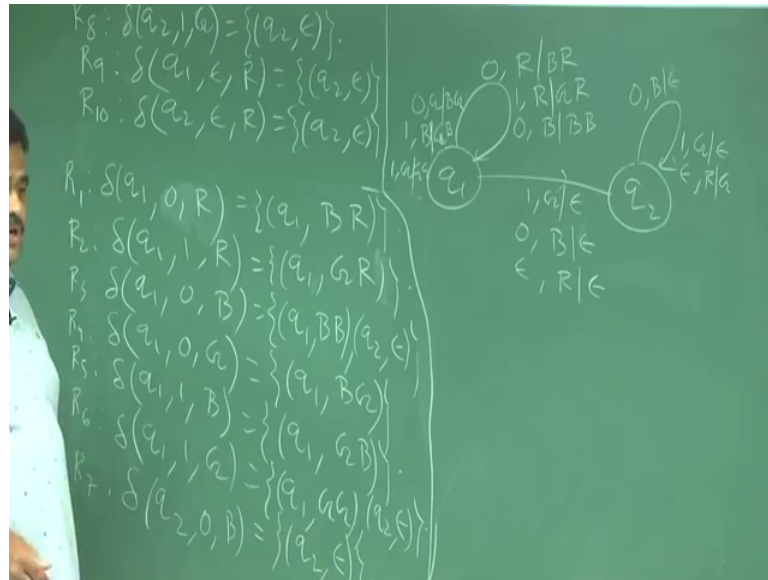 R8: δ(q2,1,G)={(q2,ϵ)}.
R9: δ(q1,ϵ,R)={(q2,ϵ)}
R10: δ(q2,ϵ,R)={(q2,ϵ)}
R1: δ(q1,0,R)={(q1, BR)}
R2: δ(q1,1,R)={(q1, GR)}.
R3: δ(q1,0,B)={(q1,BB),(q2,ϵ)}
R4: δ(q1,0,G)={(q1, BG)}
R5: δ(q1,1,B)={(q1, GB)}.
R6: δ(q1,1,G)={(q1, GG),(q2,ϵ)}.
R7: δ(q2,0,B)={(q2,ϵ)}
0, R/BR
1, R/GR
0, B/BB
0,G/BG
1, B/GB
1,G/GG
q1
1,G/ϵ
0, B/ϵ
ϵ, R/ϵ
0, B/ϵ
1, G/ϵ
ϵ, R/G
q2